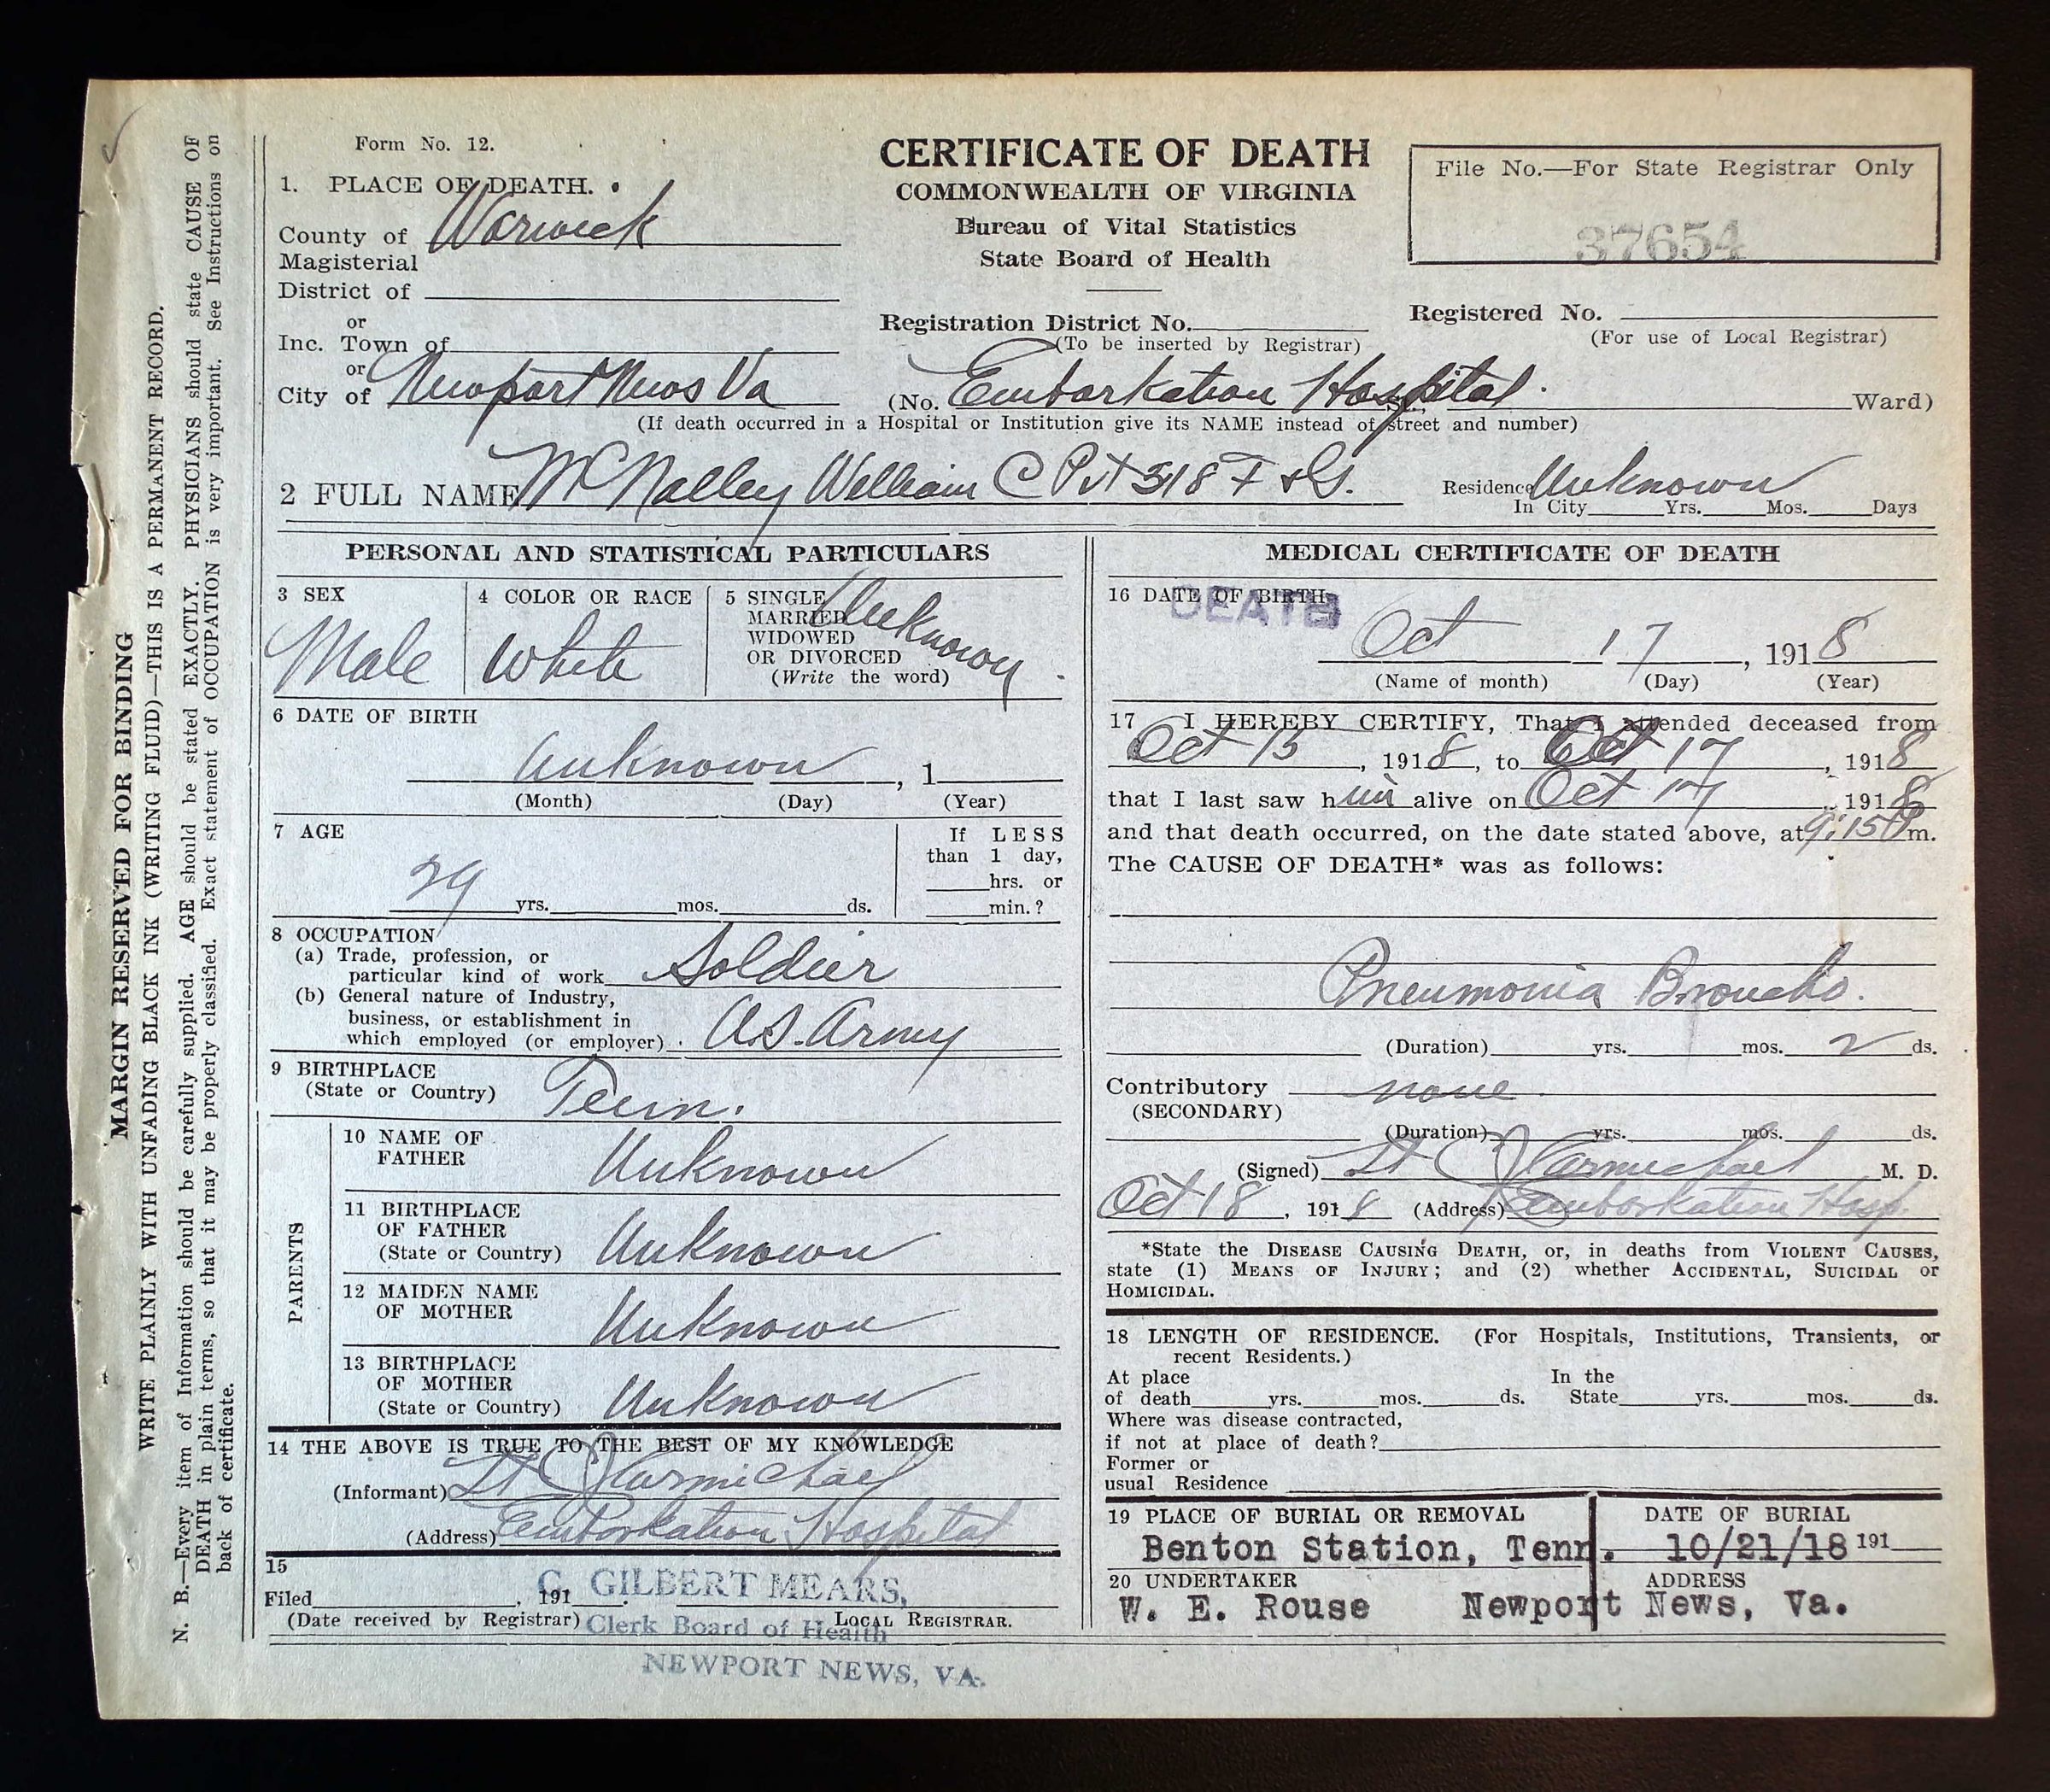 Form No. 12.
CERTIFICATE OF DEATH
COMMONWEALTH OF VIRGINIA
Bureau of Vital Statistics
State Board of Health
File No.—For State Registrar Only
37654
1. PLACE OF DEATH.
County of Warwick
Magisterial
District of
or
Inc. Town of
or
City of Newport News Va
Registration District No.
(To be inserted by Registrar)
Registered No.
(For use of Local Registrar)
(No. Embarkation Hospital. St., Ward)
(If death occurred in a Hospital or Institution give its NAME instead of street and number)
2 FULL NAME McNalley William C Pvt 318 F & G.
Residence Unknown
In City Yrs. Mos. Days
PERSONAL AND STATISTICAL PARTICULARS
3 SEX
Male
4 COLOR OR RACE
White
5 SINGLE
MARRIED
WIDOWED
OR DIVORCED
(Write the word)
Unknown
6 DATE OF BIRTH
Unknown , 1
(Month) (Day) (Year)
7 AGE
29 yrs. mos. ds.
If LESS
than 1 day,
hrs. or
min.?
8 OCCUPATION
(a) Trade, profession, or
particular kind of work Soldier
(b) General nature of Industry,
business, or establishment in
which employed (or employer) U.S. Army
9 BIRTHPLACE
(State or Country) Tenn.
PARENTS
10 NAME OF
FATHER Unknown
11 BIRTHPLACE
OF FATHER
(State or Country) Unknown
12 MAIDEN NAME
OF MOTHER Unknown
13 BIRTHPLACE
OF MOTHER
(State or Country) Unknown
14 THE ABOVE IS TRUE TO THE BEST OF MY KNOWLEDGE
(Informant) Lt C J Carmichael
(Address) Embarkation Hospital
15
Filed , 191
C. GILBERT MEARS,
(Date received by Registrar) LOCAL REGISTRAR.
Clerk Board of Health
NEWPORT NEWS, VA.
MEDICAL CERTIFICATE OF DEATH
16 DATE OF BIRTH
DEATH
Oct 17, 1918
(Name of month) (Day) (Year)
17 I HEREBY CERTIFY, That I attended deceased from
Oct 15, 1918, to Oct 17, 1918
that I last saw him alive on Oct 17, 1918
and that death occurred, on the date stated above, at 9:15 P m.
The CAUSE OF DEATH* was as follows:
Pneumonia Broncho.
(Duration) yrs. mos. 2 ds.
Contributory none.
(SECONDARY)
(Duration) yrs. mos. ds.
(Signed) Lt C J Carmichael M. D.
Oct 18, 1918 (Address) Embarkation Hosp.
*State the DISEASE CAUSING DEATH, or, in deaths from VIOLENT CAUSES,
state (1) MEANS OF INJURY; and (2) whether ACCIDENTAL, SUICIDAL or
HOMICIDAL.
18 LENGTH OF RESIDENCE. (For Hospitals, Institutions, Transients, or
recent Residents.)
At place In the
of death yrs. mos. ds. State yrs. mos. ds.
Where was disease contracted,
if not at place of death?
Former or
usual Residence
19 PLACE OF BURIAL OR REMOVAL
Benton Station, Tenn.
DATE OF BURIAL
10/21/18 191
20 UNDERTAKER
W. E. Rouse
ADDRESS
Newport News, Va.
MARGIN RESERVED FOR BINDING
WRITE PLAINLY WITH UNFADING BLACK INK (WRITING FLUID)—THIS IS A PERMANENT RECORD.
N. B.—Every item of Information should be carefully supplied. AGE should be stated EXACTLY. PHYSICIANS should state CAUSE OF
DEATH in plain terms, so that it may be properly classified. Exact statement of OCCUPATION is very important. See Instructions on
back of certificate.